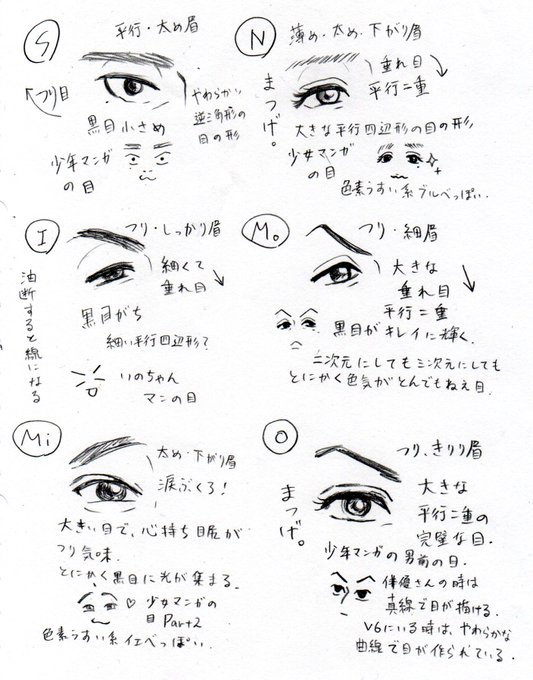 S
平行・太め眉
フリ目
黒目小さめ
やわらかい
逆三角形の
目の形
少年マンガ
の目
N
薄め・太め・下がり眉
垂れ目
平行二重
まつげ。
大きな平行四辺形の目の形
少女マンガ
の目
色素うすい系ブルべっぽい.
I
フリ・しっかり眉
細くて
垂れ目
黒目がち
細い平行四辺形て
いのちゃん
マンの目
油断すると線になる
Mo
フリ・細眉
大きな
垂れ目
平行二重
黒目がキレイに輝く.
二次元にしても三次元にしても
とにかく色気がとんでもねえ目.
Mi
太め・下がり眉
涙ぶくろ!
大きい目で、心持ち目尻が
フリ気味.
とにかく黒目に光が集まる.
少女マンガの
目Part2
色素うすい系イエベっぽい.
O
フリ、きりり眉
まつげ。
大きな
平行二重の
完璧な目.
少年マンガの男前の目.
俳優さんの時は
直線で目が描ける.
V6にいる時は、やわらかな
曲線で目が作られている.